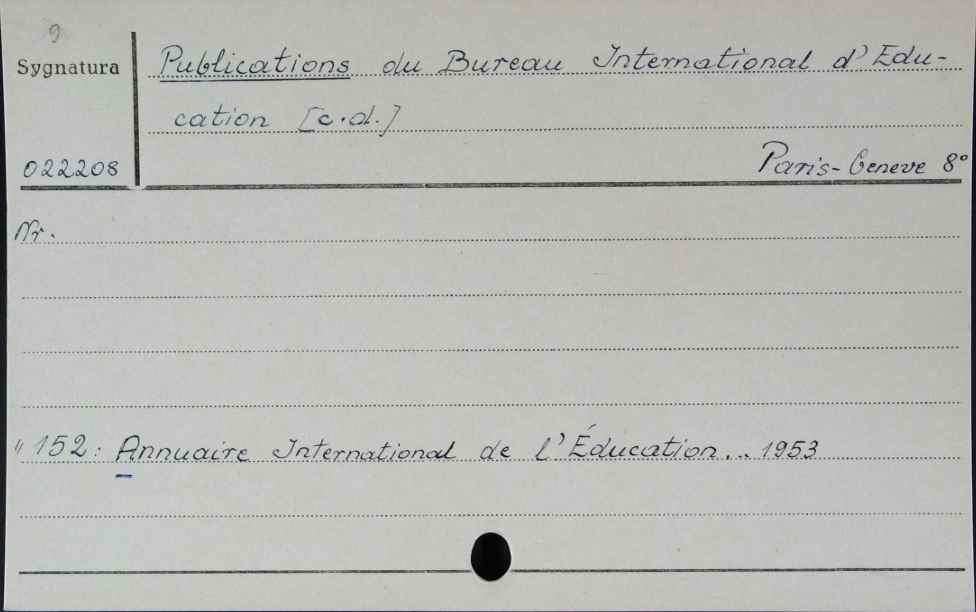 9
Sygnatura
Publications du Bureau International d'Edu-
cation [c.d.]
022208
Paris-Geneve 8°
Nr.
" 152: Annuaire International de l'Éducation... 1953